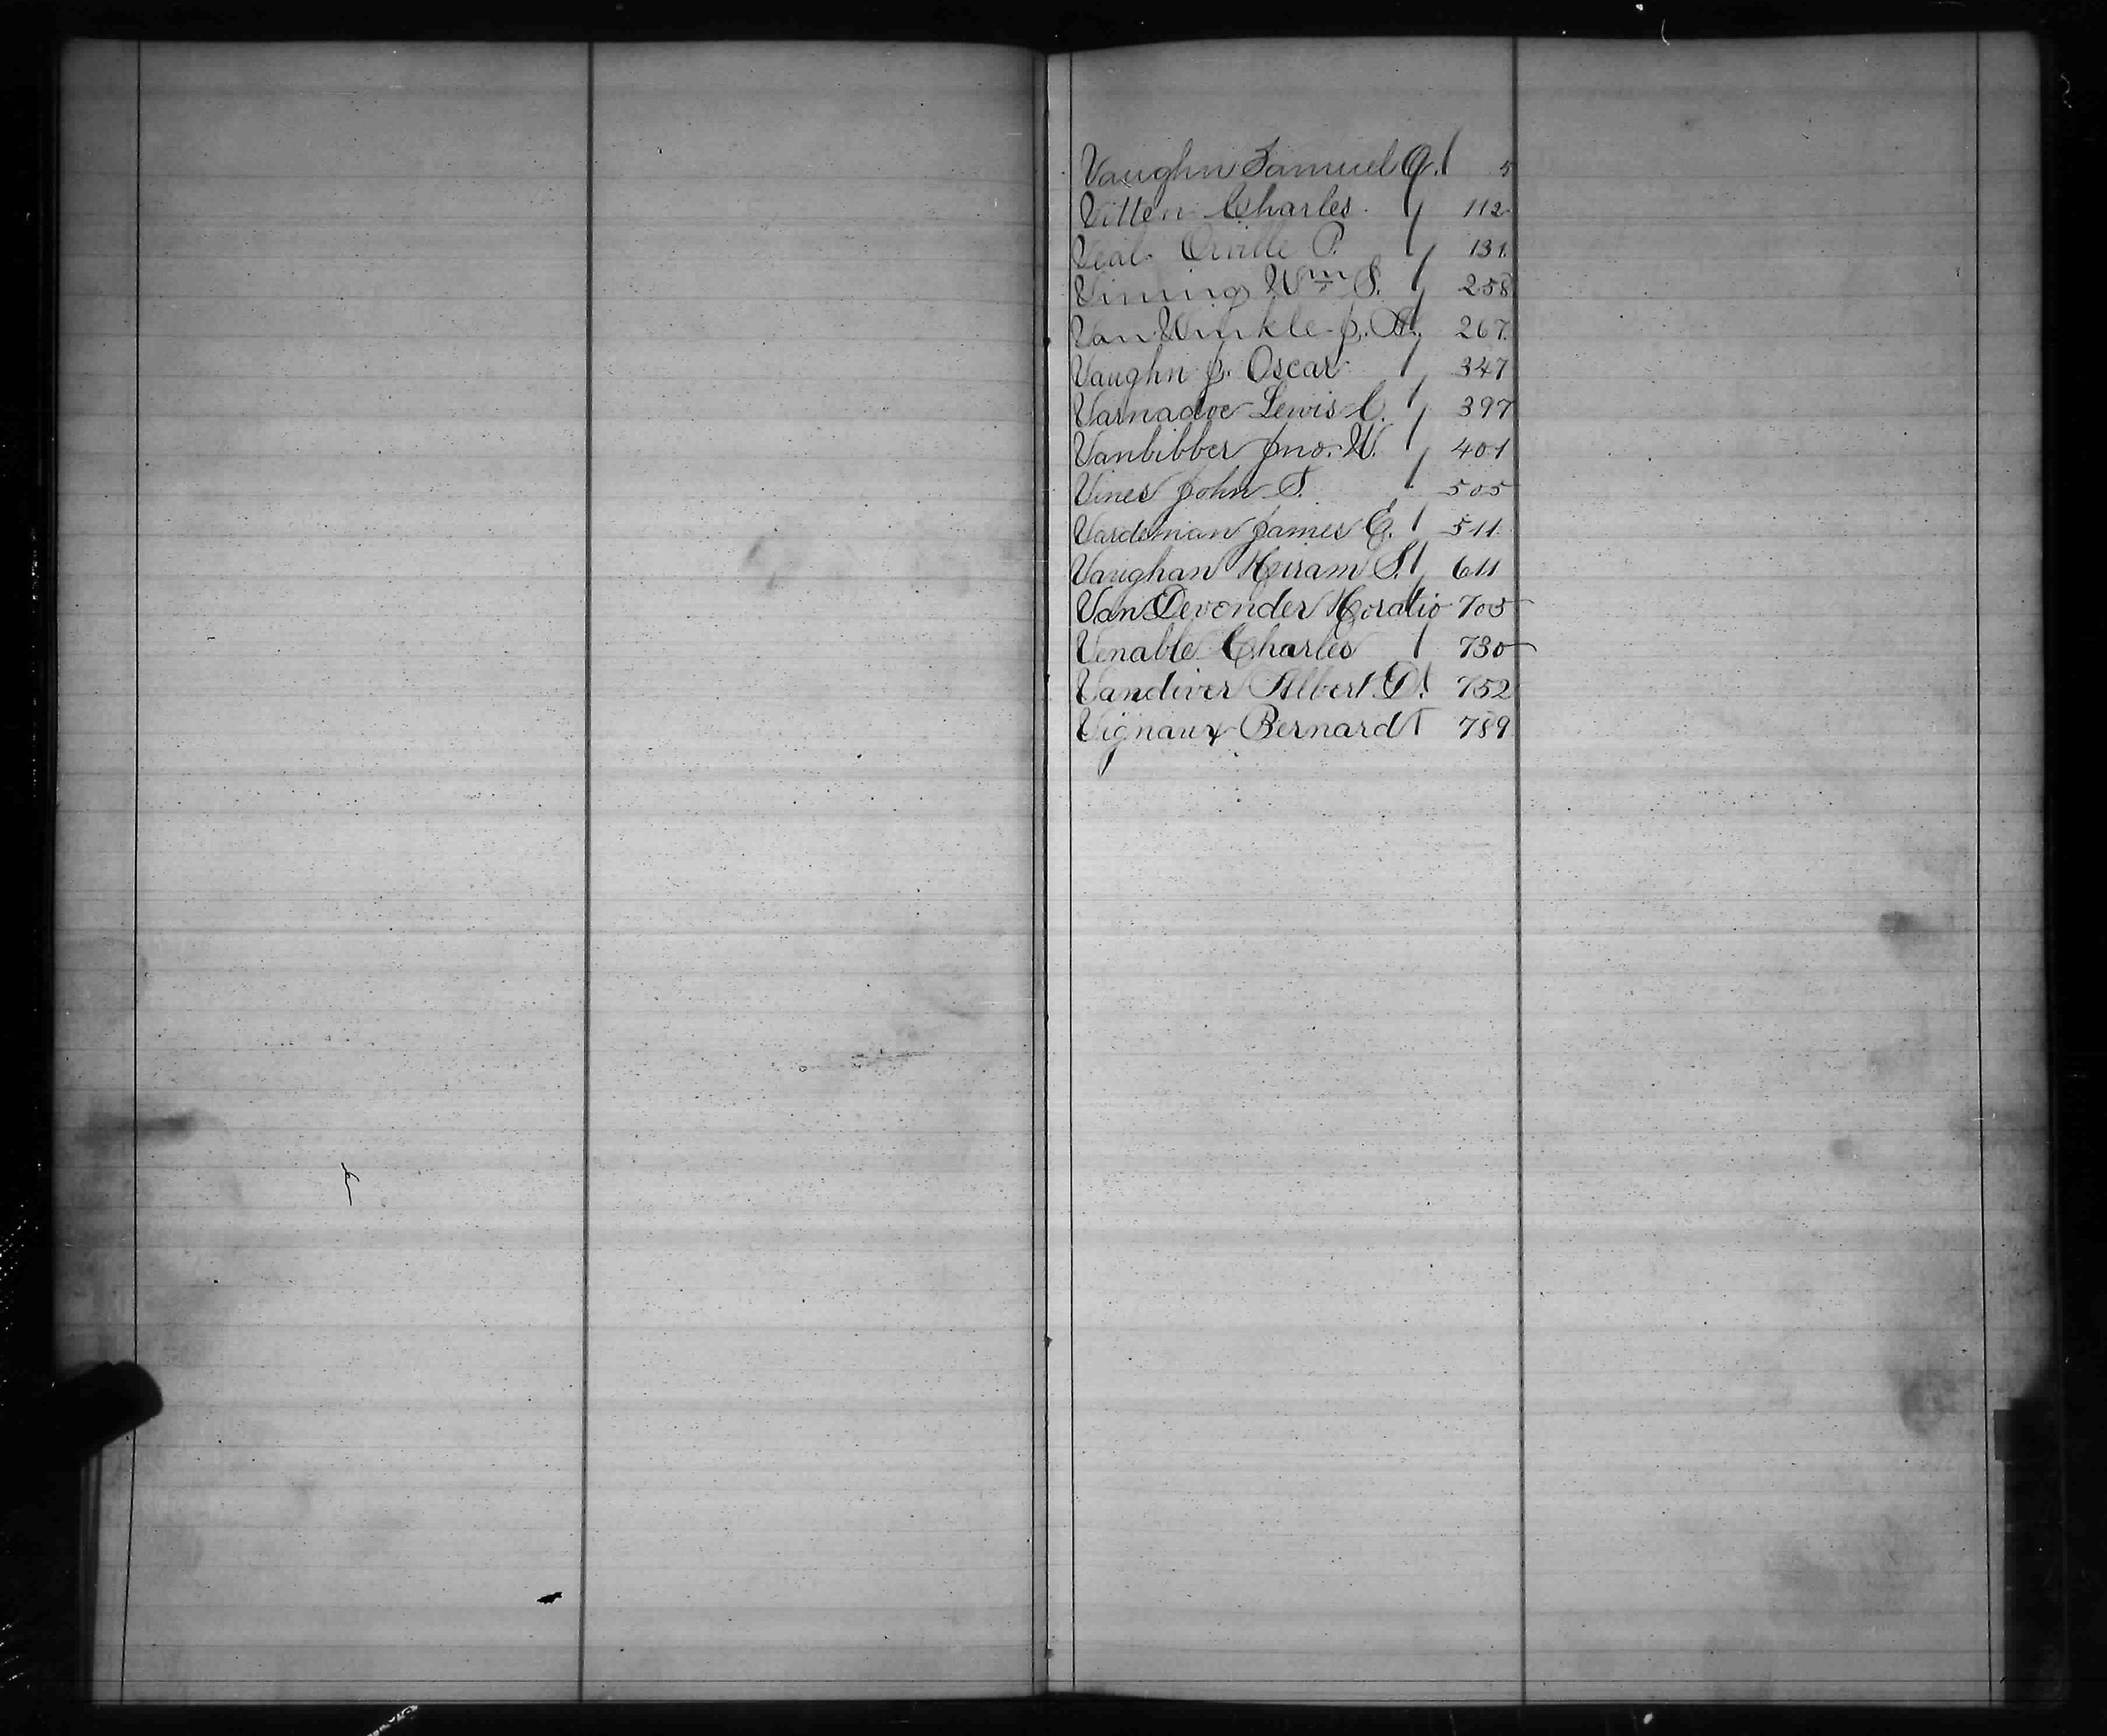 Vaughn Samuel Q. 5
Vitten Charles. 112
Veal Orville P. 131
Vining Wm S. 258
Van Winkle J. A. 267
Vaughn J. Oscar 347
Varnadoe Lewis C. 397
Vanbibber Jno. W. 401
Vines John T. 505
Vardeman James E. 511
Vaughan Hiram S. 611
Van Devender Horatio 705
Venable Charles 730
Vandiver Albert D. 752
Vignaux Bernard 789